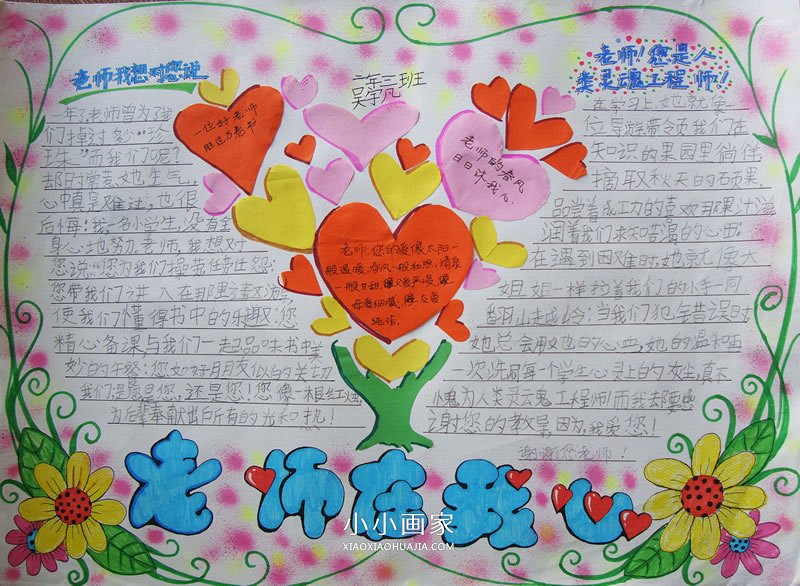 老师我想对您说
一年了老师曾为了我
们掉过多少“珍
珠”而我们呢?
却时常惹她生气
心中真是难过,也很
后悔:我,一名小学生,没有全
身心地努力老师,我想对
您说:“您为我们操劳任劳任怨:
您带我们
使我们懂得书中的乐趣:您
精心备课,与我们一起品味书中美
妙的乐
我们是您是您,还是您!您像一根红烛
为后辈奉献出所有的光和热!
二年三班
吴宇凡
一位好老师
胜过万卷书
老师的春风
日日沐我心
老师,您的爱像太阳一
般温暖,春风一般和煦,清泉
一般甘甜,
母爱细腻,
纯洁.
老师!您是人
类灵魂工程师!
在学习上她就像一
位导游带领我们在
知识的果园里徜徉
摘取秋天的硕果,
品尝着成功的喜欢那果汁滋
润着我们求知若渴的心田
在遇到困难时她就像大
姐姐一样拉着我们的小手一同
翻山越岭:当我们犯错误时
她总会用她的心血,她的温和面
一次洗刷每一个学生心灵上的灰尘,真不
愧为人类灵魂工程师!而我却要感
谢您的教导,因为,我爱您!
谢谢您老师!
老师在我心
小小画家
XIAOXIAOHUAJIA.COM